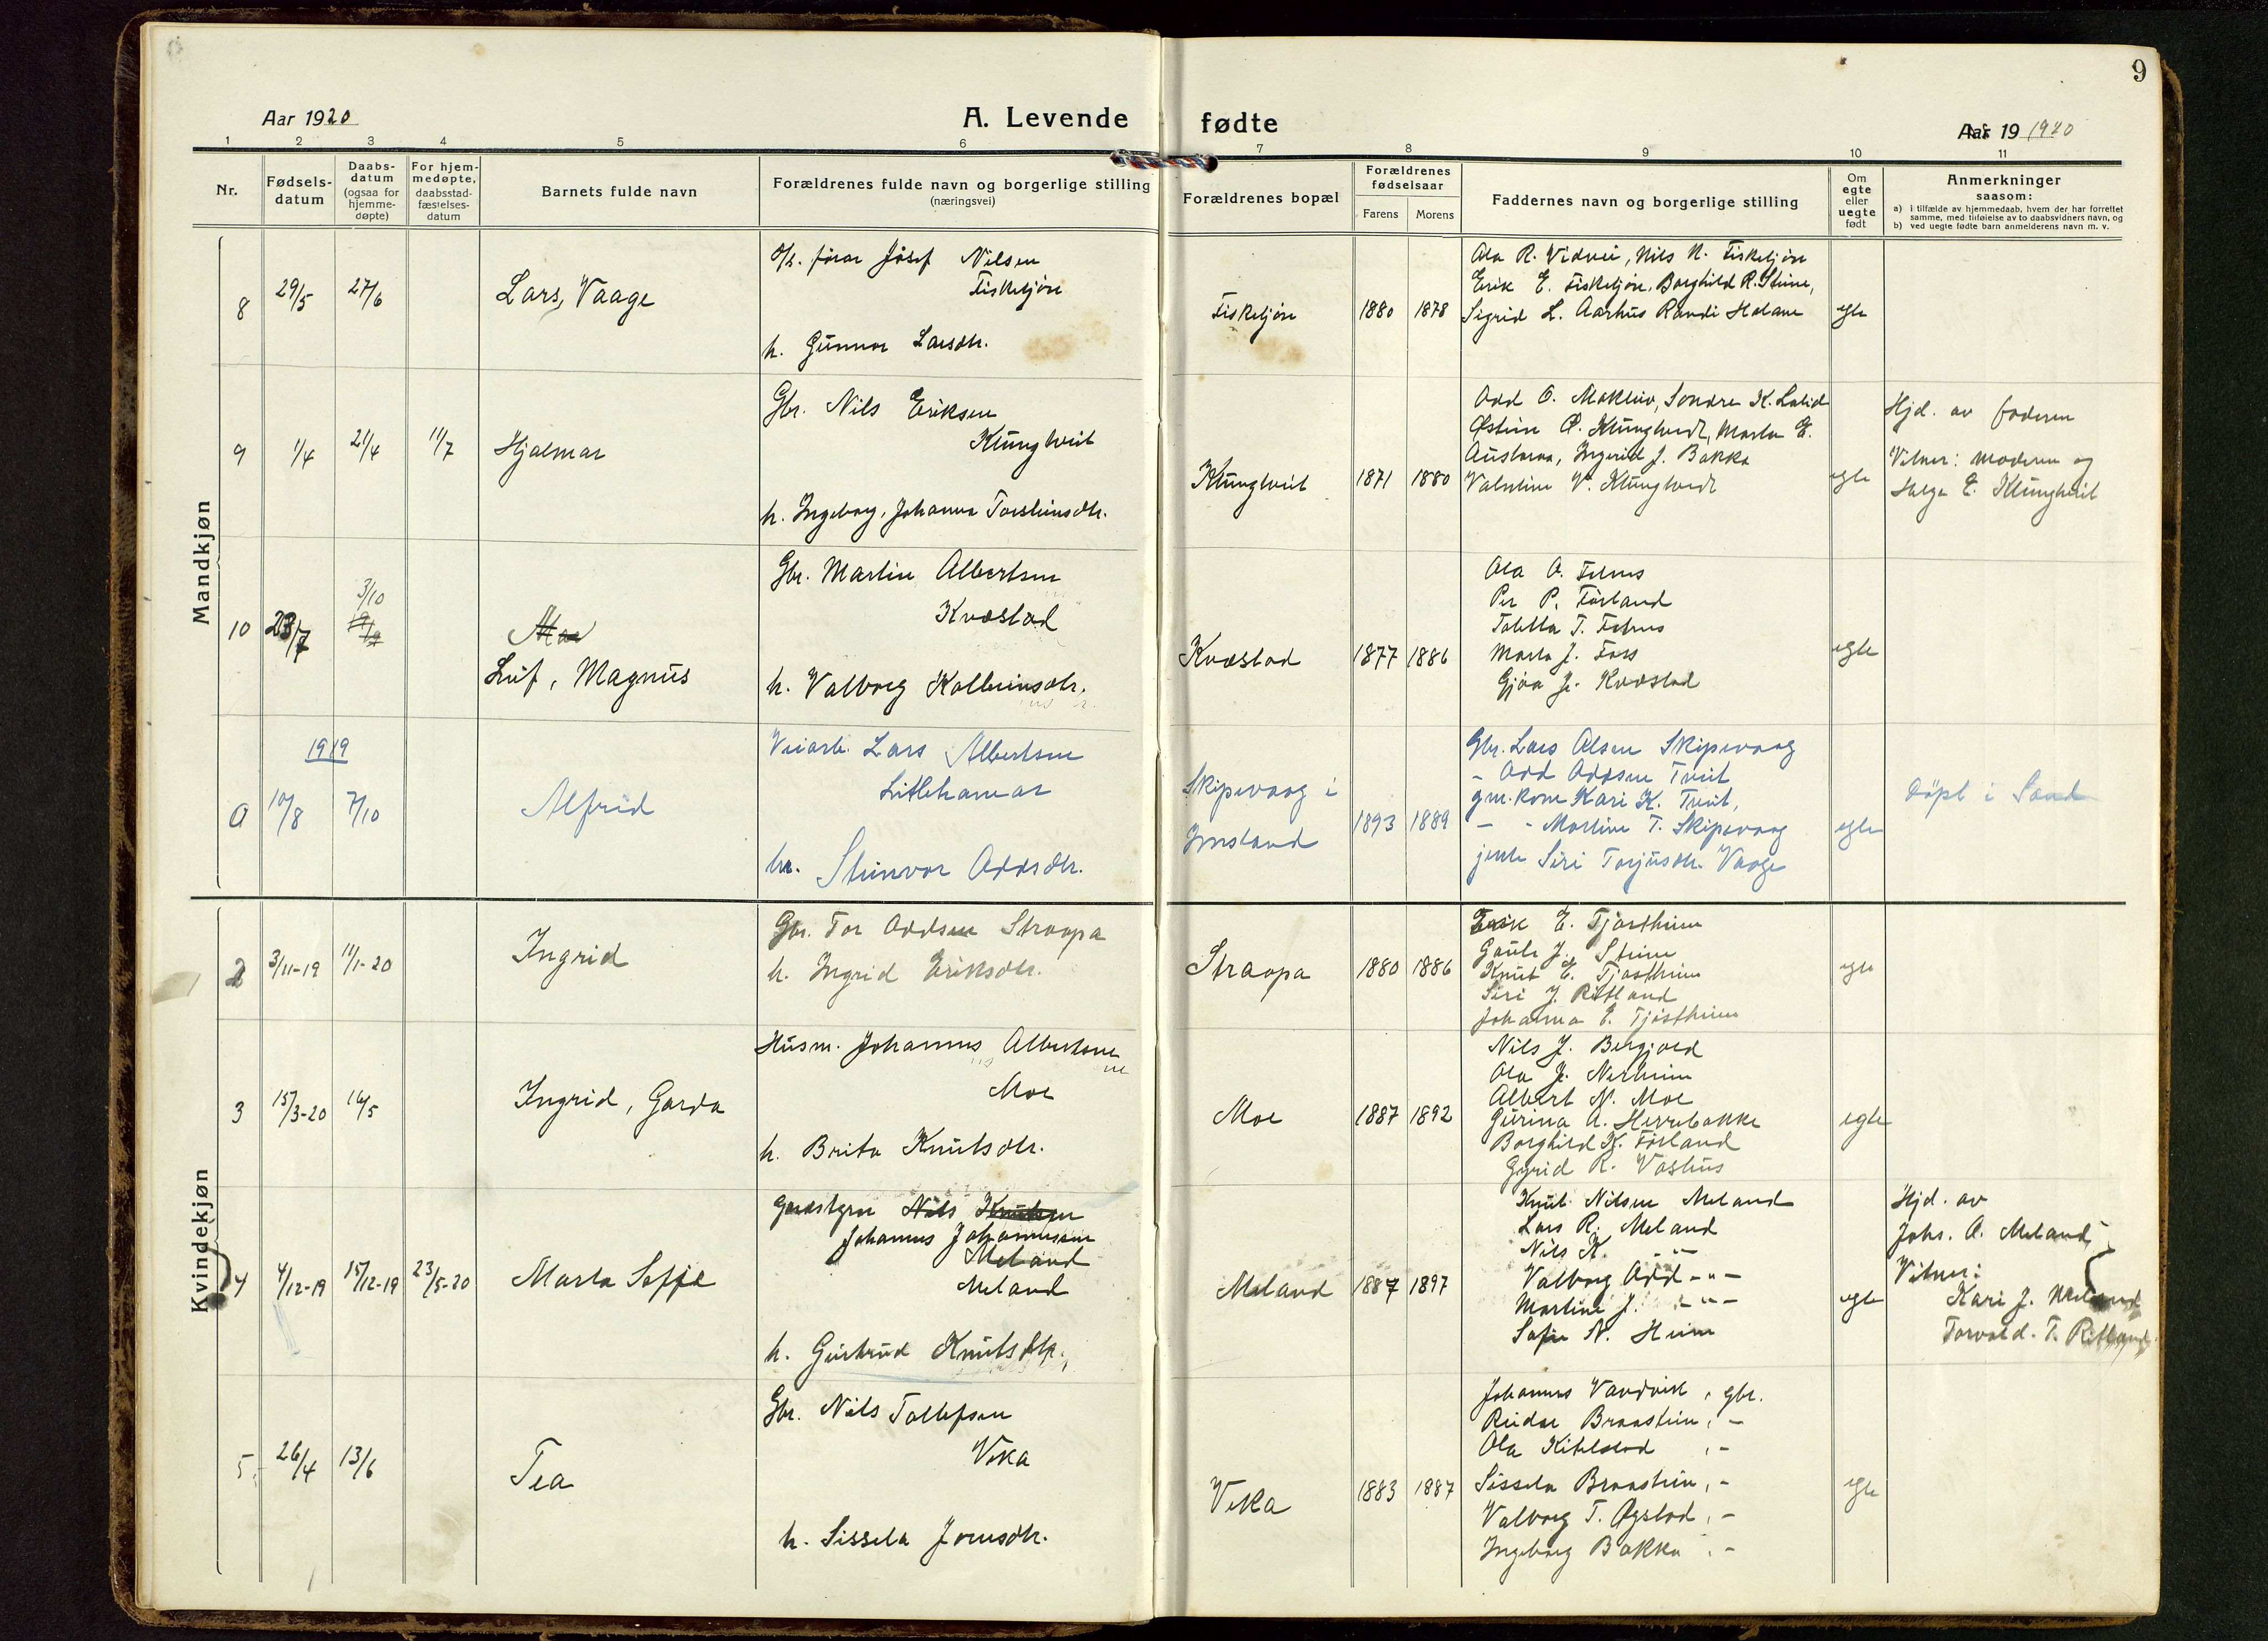 9
Aar 1920
A. Levende fødte
Aar 19 1920
1 2 3 4 5 6 7 8 9 10 11
Nr.
Fødsels-
datum
Daabs-
datum
(ogsaa for
hjemme-
døpte)
For hjem-
medøpte,
daabsstad-
fæstelses-
datum
Barnets fulde navn
Forældrenes fulde navn og borgerlige stilling
(næringsvei)
Forældrenes bopæl
Forældrenes
fødselsaar
Farens
Morens
Faddernes navn og borgerlige stilling
Om
egte
eller
uegte
født
Anmerkninger
saasom:
a) i tilfælde av hjemmedaab, hvem der har forrettet
samme, med tilføielse av to daabsvidners navn, og
b) ved uegte fødte barn anmelderens navn m. v.
Mandkjøn
8
29/5
27/6
Lars, Vaage
Josef Nilsen
Fisketjøn
h. Gunvor Larsdtr.
Fisketjøn
1880
1878
Ola R. Vidvei, Nils N. Fisketjøn
Erik E. Fisketjøn, Borghild R. Steine,
Sigrid L. Aarhus Randi Helane
egte
9
1/4
21/4
11/7
Hjalmar
Gbr. Nils Eriksen
Klungtveit
h. Ingeborg, Johanna Torsteinsdtr.
Klungtveit
1871
1880
Odd O. Mokleiv, Sondre K. Lalid
Østein Ø. Klungtvedt, Marta E.
Austaraa, Ingerid J. Bakka
Valentine V. Klungtvedt
egte
Hjd. av faderen
Vitner: moderen og
Helge E. Klungtveit
10
23/7
3/10
19/9
Mar
Leif, Magnus
Gbr. Martin Albertsen
Kvæstad
h. Valborg Kolbeinsdtr.
Kvæstad
1877
1886
Ola O.
Per P. Førland
Marta J. Foss
Gjøa J. Kvæstad
egte
1919
a
10/8
7/10
Alfred
Veiarb. Lars Albertsen
Litlehamar
h. Steinvor Oddsdtr.
Skipevaag i
Imsland
1893
1889
Gbr. Lars Olsen Skipevaag
- Odd Oddsen Tveit
gm. kone Kari K. Tveit,
- - Martine T. Skipevaag
jente Siri Torjusdtr. Vaage
egte
Døpt i Sand
Kvindekjøn
2
3/11-19
11/1-20
Ingrid
Gbr. Tor Oddsen Straapa
h. Ingrid Eriksdtr.
Straapa
1880
1886
Erik E. Tjøstheim
Gaute J. Steine
Knut E. Tjøstheim
Siri J. Ritland
Johanna E. Tjøstheim
egte
3
15/3-20
16/5
Ingrid, Garda
Husm. Johannes Albertsen
Moe
h. Brita Knutsdtr.
Moe
1887
1892
Nils J. Bergjord
Ola J. Nerheim
Albert N. Moe
Gurina A. Herrebakke
Borghild K. Førland
Gyrid R. Vashus
egte
4
4/12-19
15/12-19
23/5-20
Marta Soffie
Nils Knutsen
Johannes Johannessen
Meland
Meland
h. Gurtrud Knutsdtr.
Meland
1887
1897
Knut Nilsen Meland
Lars R. Meland
Nils K. - " -
Valborg Odd - " -
Martine J. - " -
Sofie N. Heim
egte
Hjd. av
Johs. A. Meland,
Vitner:
Kari J. Meland
Torvald. T. Ritland
5
26/4
13/6
Tea
Gbr. Nils Tollefsen
Vika
h. Sissela Jonsdtr.
Vika
1883
1887
Johannes Vandvik, gbr.
Reidar Braastein, -
Ola Kitelstad, -
Sissela Braastein, -
Valborg T. Øgstad, -
Ingeborg Bakka, -
egte